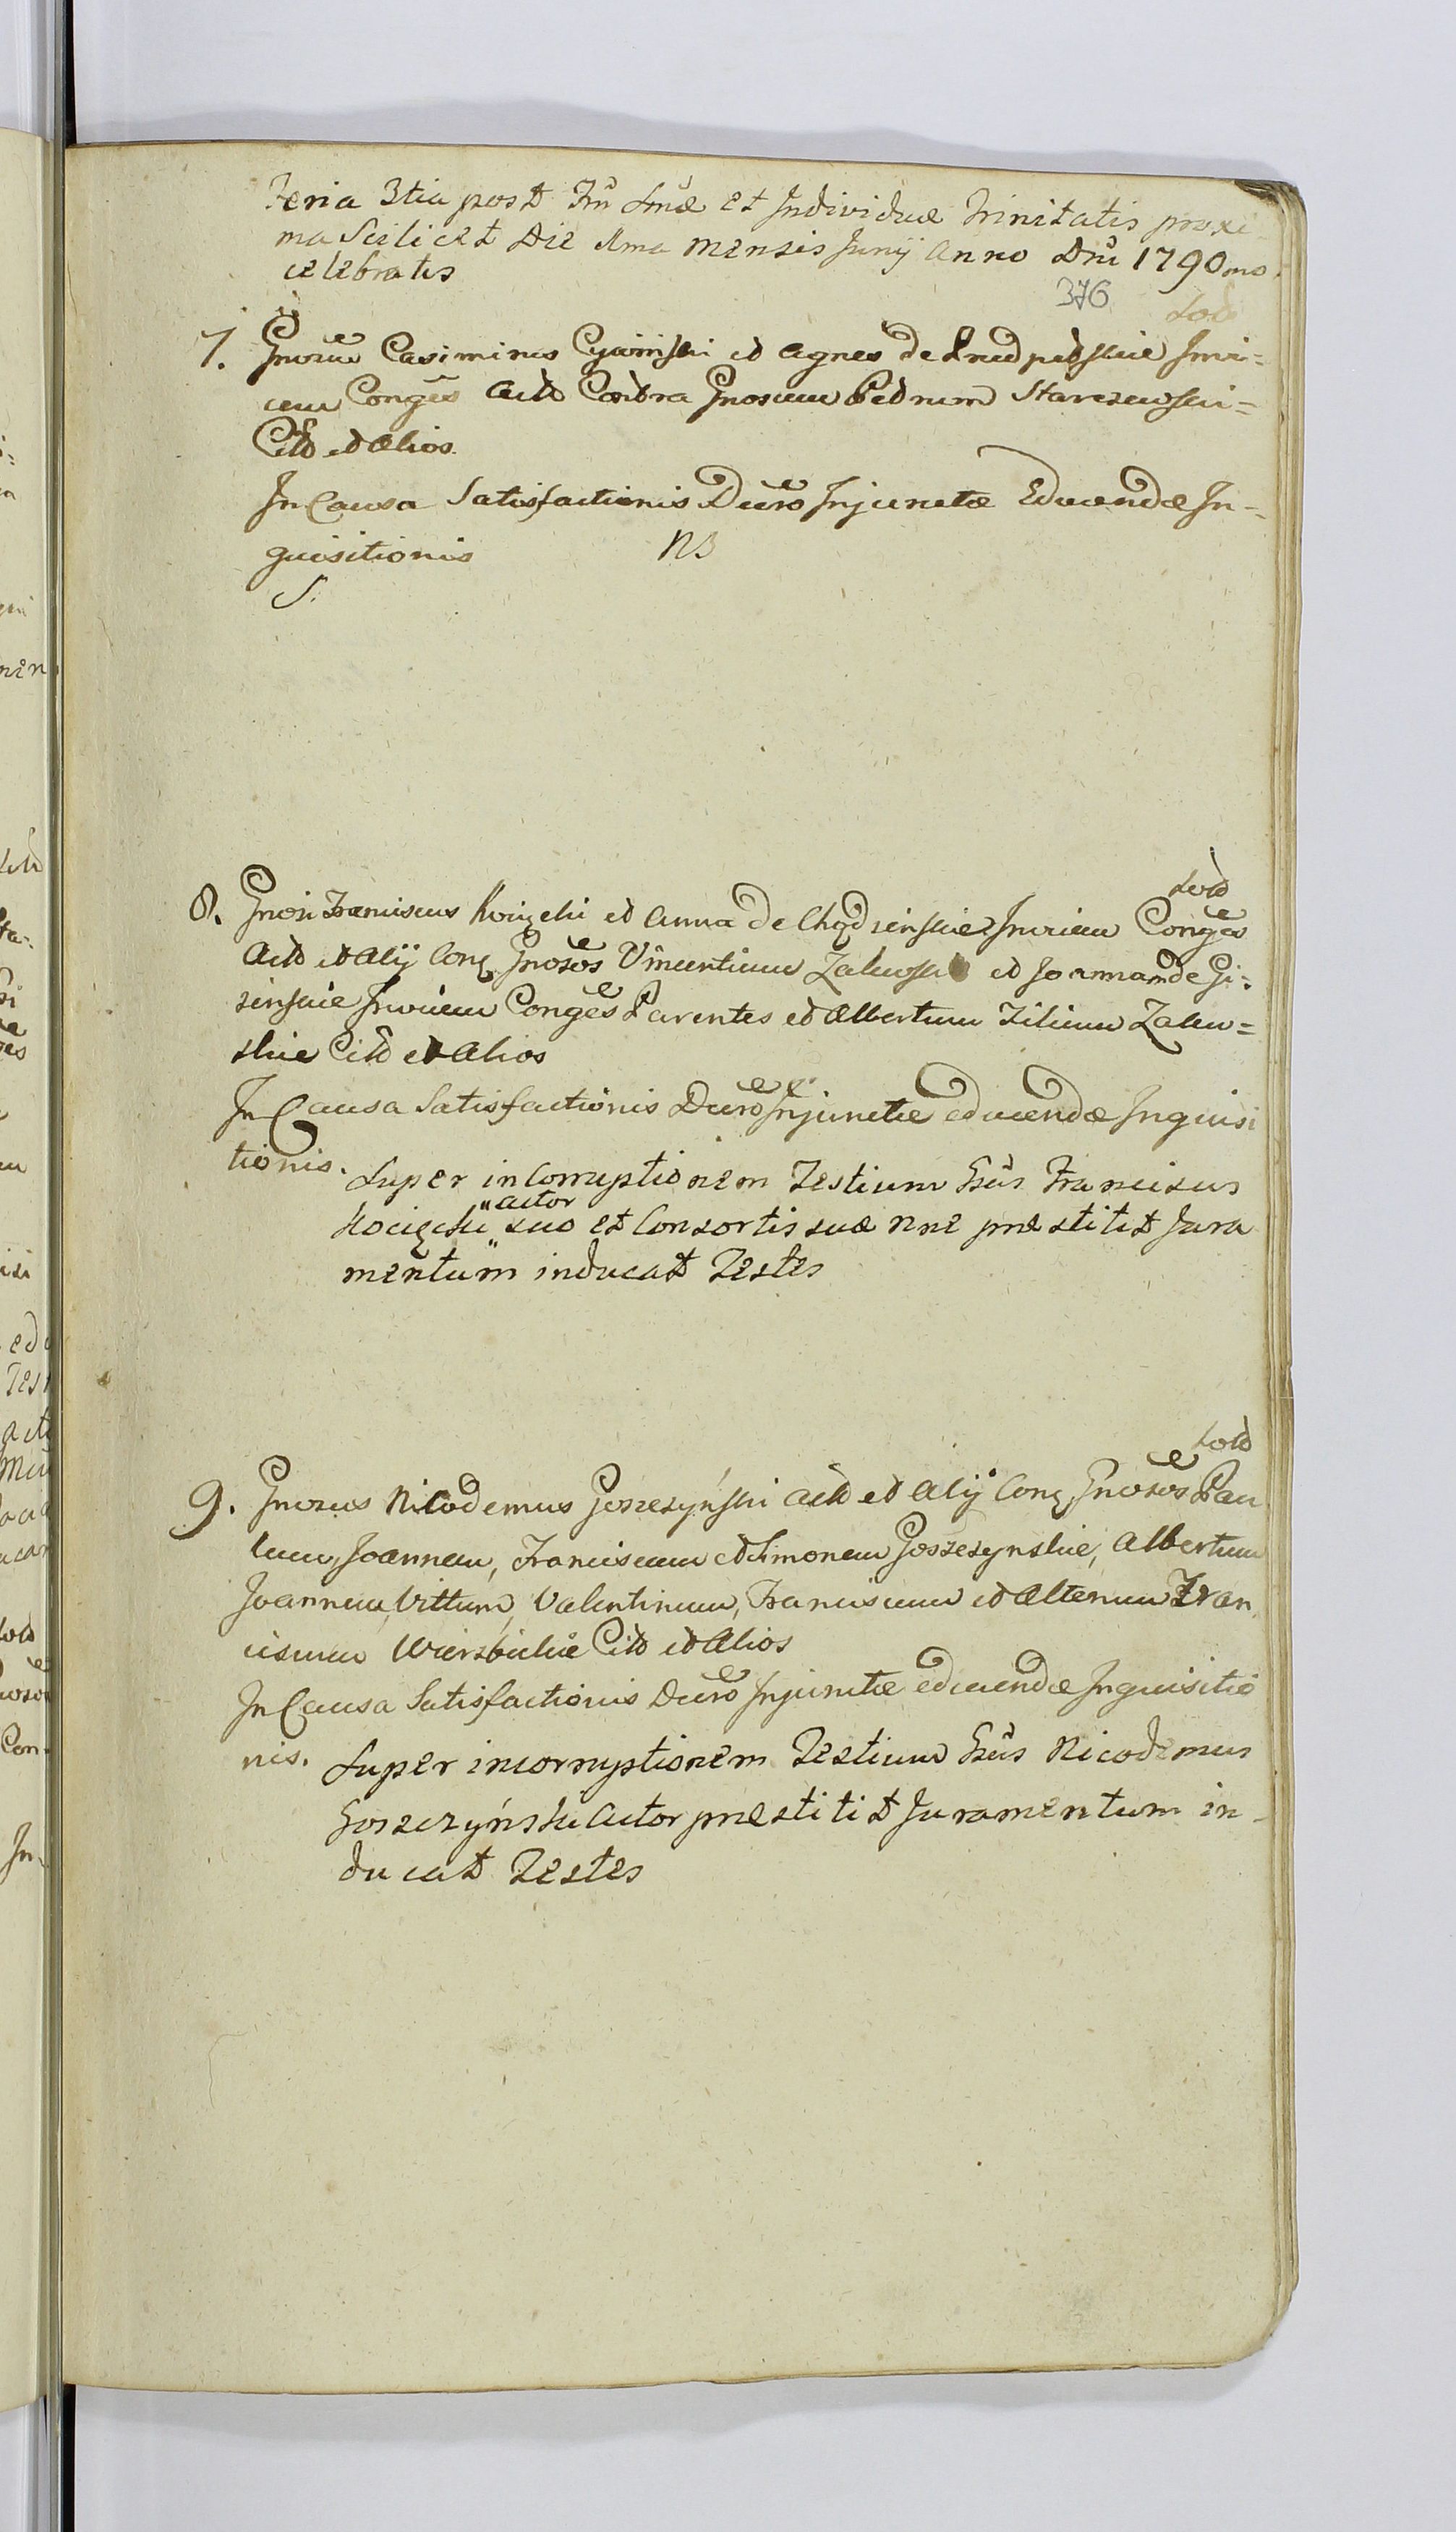 Feria 3tia post Fm̃ Smæ et Individuæ Trinitatis proxi
ma Scilicet Die 1ma Mensis Junij Anno Dnĩ 1790mo
celebratis
376
Sold
7. Gnosus Casimirus et Agnes de Invi=
cem Congẽs Actt Contra Gnosum Petrum Starczewski=
Citt et Alios
In Causa Satisfactionis Dĕcro Injunctæ Educendæ In=
quisitionis NB
S.
Sold
8. Gnosi Franciscus Kocięcki et Anna de Chądzinskie Invicem Congẽs
Actt et Alij Conq Gnosos Vincentium Zalewski et Joannam de Gi=
zinskie Invicem Congẽs Parentes et Albertum Filium Zalew=
skie Citt et Alios
In Causa Satisfactionis Dĕcro Injunctæ educendæ Inquisi
tionis. Super incorruptionem Testium Gsũs Franciscus
Kocięcki „Actor„ suo et Consortis suæ nne præstitit Jura
mentum inducat Testes
Sold
9. Gnosus Nicodemus Goszczyński Actt et Alij Conq Gnosos Pau
lum, Joannem, Franciscum et Simonem Goszczynskie, Albertum
Joannem, Vittum, Valentinum, Franciscum et Alterum Fran
ciscum Wierzbickie Citt et Alios
In Causa Satisfactionis Dĕcro Injunctæ educendæ Inquisitio
nis. Super incorruptionem Testium Gsũs Nicodemus
Goszczyński Actor præstitit Juramentum in=
ducat Testes